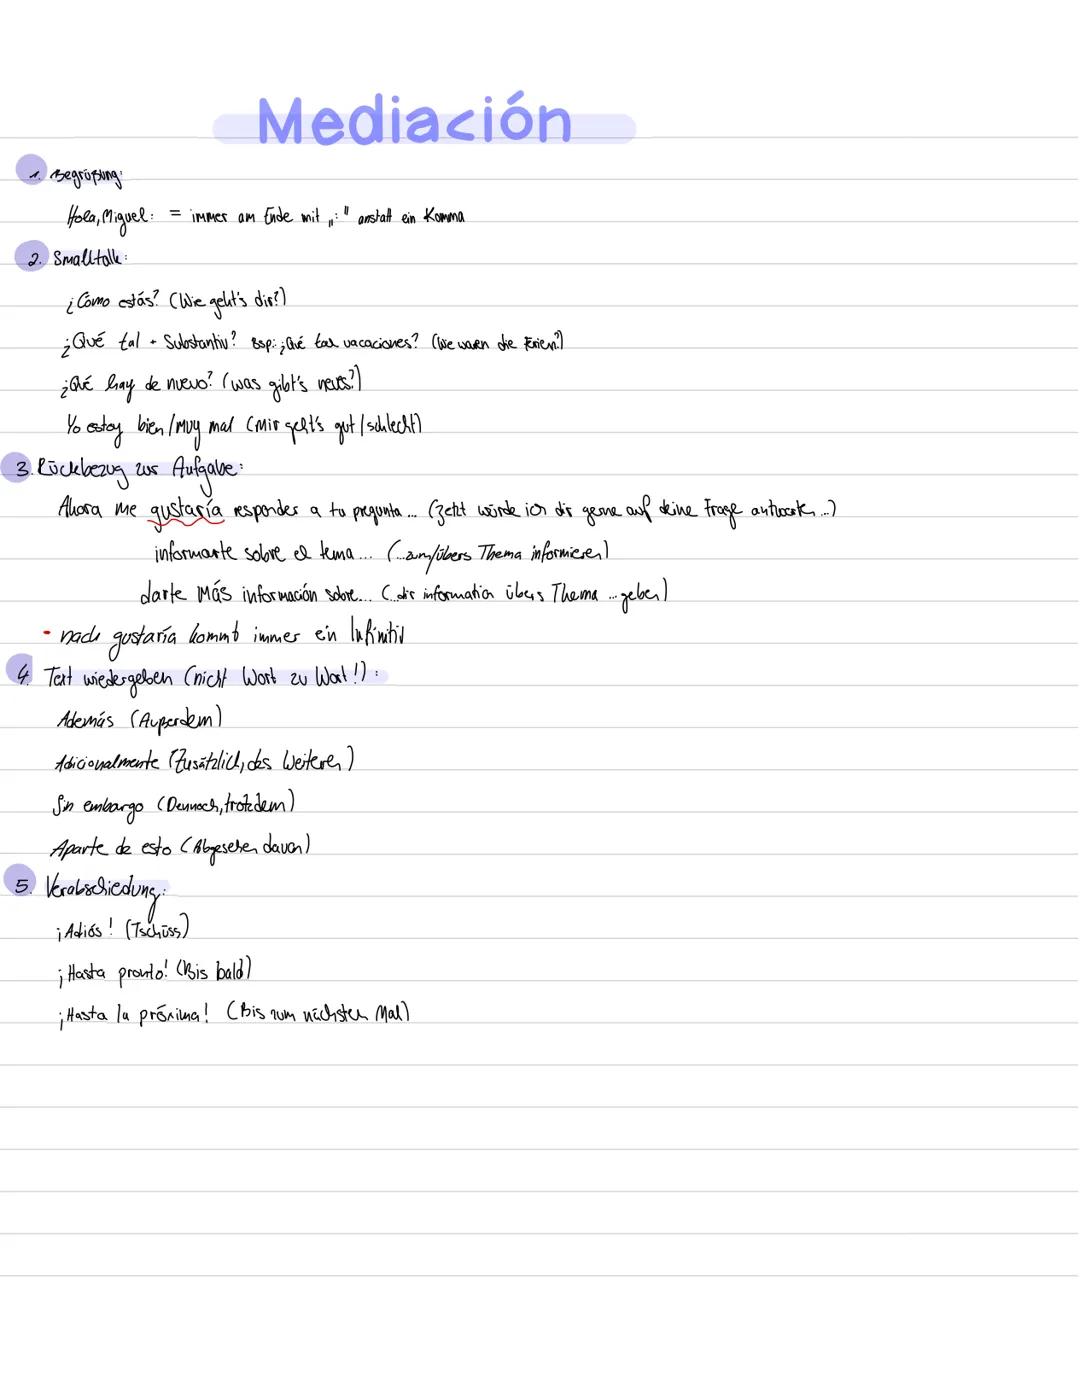 Mediación
1. Begrüßung:
Hola, Miguel: = immer am Ende mit „:" anstatt ein Komma
2. Smalltalk:
¿Cómo estás? (Wie geht's dir?)
¿Qué tal + Substantiv? Bsp.: ¿Qué tal vacaciones? (Wie waren die Ferien?)
¿Qué hay de nuevo? (was gibt's neues?)
Yo estoy bien/muy mal (Mir geht's gut/schlecht)
3. Rückbezug zur Aufgabe:
Ahora me gustaría responder a tu pregunta... (Jetzt würde ich dir gerne auf deine Frage antworten...)
informarte sobre el tema... (...zum/übers Thema informieren)
darte más información sobre... (...dir information übers Thema ... geben)
• nach gustaría kommt immer ein Infinitiv
4. Text wiedergeben (nicht Wort zu Wort!):
Además (Außerdem)
Adicionalmente (Zusätzlich, des Weiteren)
Sin embargo (Dennoch, trotzdem)
Aparte de esto (Abgesehen davon)
5. Verabschiedung:
¡Adiós! (Tschüss)
¡Hasta pronto! (Bis bald)
¡Hasta la próxima! (Bis zum nächsten Mal)